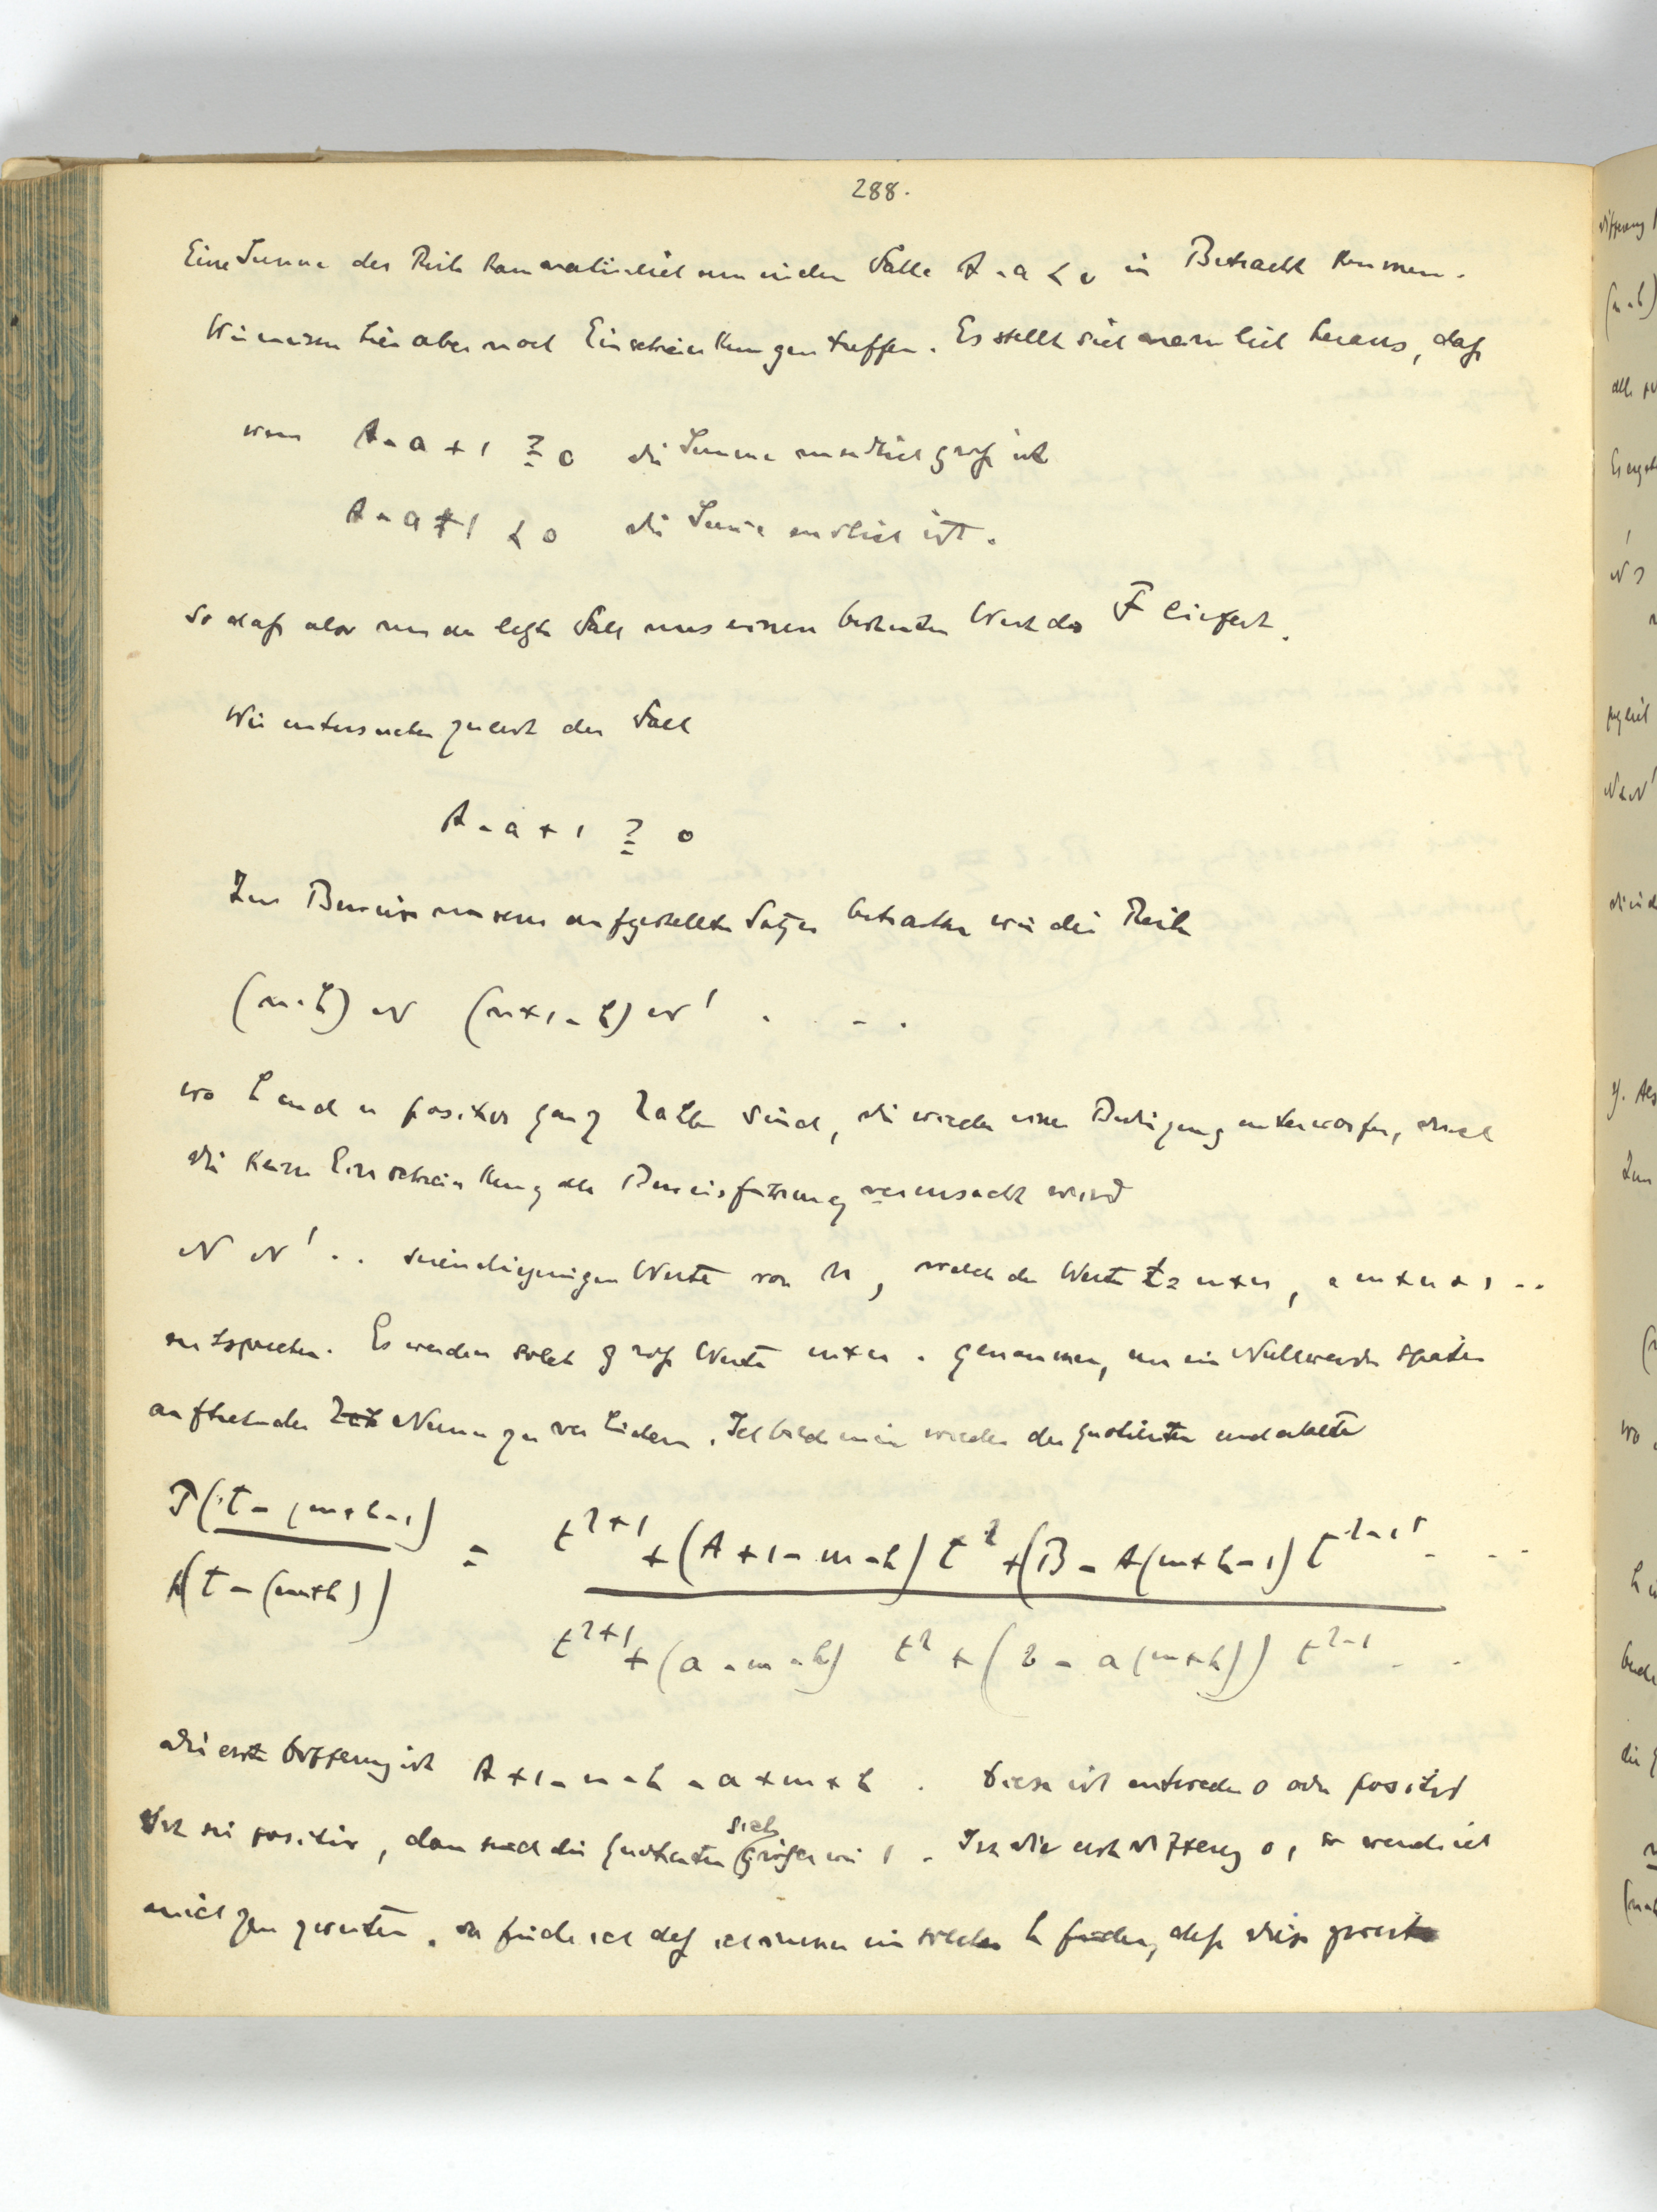 288.
Eine Summe der Reihe kann natürlich nur in dem Falle A - a < 0 in Betracht kommen.
Wir müssen hier aber noch Einschränkungen treffen. Es stellt sich nämlich heraus, daß
wenn A - a + 1 ≧ 0 die Summe unendlich groß ist
A - a + 1 < 0 die Summe endlich ist.
So daß also nur der letzte Fall uns einen bestimmten Wert des F liefert.
Wir untersuchen zuerst den Fall
A - a + 1 ≧ 0
Zum Beweise unseres aufgestellten Satzes betrachten wir die Reihe
(n - h) N (n + 1 - h) N' . . .
wo h und n positive ganze Zahlen sind, die wieder einer Bedingung unterworfen, durch
die keine Einschränkung der Beweisführung verursacht wird
N N' .. seien diejenigen Werte von N, welche den Werten t = m + n, = m + n + 1 ..
entsprechen. Es werden solch große Werte m + n . genommen, um ein Nullwerden später
auftretender Nenner zu verhindern. Ich bilde mir wieder den Quotienten und erhalte
P(t - (m + h - 1) / p(t - (m + h)) = t^{λ+1} + (A + 1 - m - h) t^λ + (B - A(m + h - 1) t^{λ-1} . . . / t^{λ+1} + (a - m - h) t^λ + (b - a(m + h)) t^{λ-1} . .
die erste Differenz ist A + 1 - m - h - a + m + h . Diese ist entweder 0 oder positiv
Ist sie positiv, dann sind die Quotienten stets größer wie 1. Ist die erste Differenz 0, so wende ich
mich zur zweiten. da finde ich daß ich immer ein solches h finde, daß diese zweite